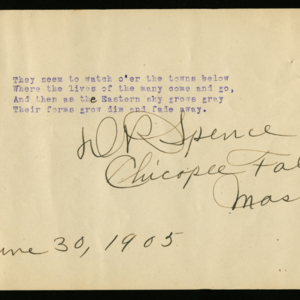 They seem to watch o'er the towns below
Where the lives of the many come and go,
And then as the Eastern sky grows gray
Their forms grow dim and fade away.
Spence
Chicopee Fal
Mas
une 30, 1905